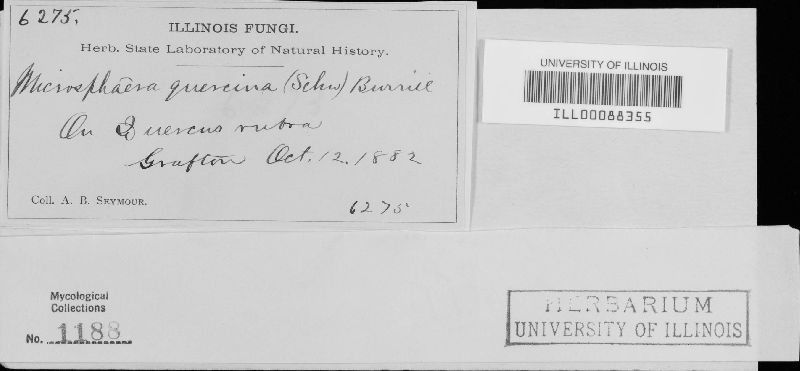 6275.
ILLINOIS FUNGI.
Herb. State Laboratory of Natural History.
Microsphaera quercina (Schw) Burrill
On Quercus rubra
Grafton Oct. 12. 1882
Coll. A. B. Seymour.
6275
UNIVERSITY OF ILLINOIS
ILL00088355
Mycological
Collections
No. 1188
HERBARIUM
UNIVERSITY OF ILLINOIS